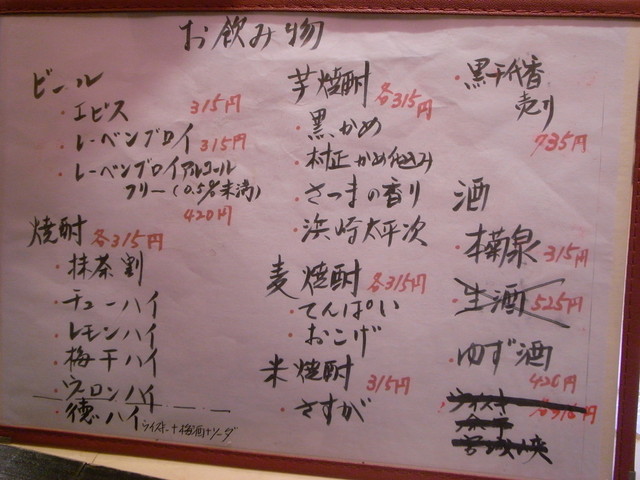 お飲み物
ビール
・エビス 315円
・レーベンブロイ 315円
・レーベンブロイアルコール
フリー(0.5%未満)
420円
焼酎 各315円
・抹茶割
・チューハイ
・レモンハイ
・梅干ハイ
・ウーロンハイ
・徳ハイ
芋焼酎 各315円
・黒かめ
・村正かめ仕込み
・さつまの香り
・浜崎太平次
麦焼酎 各315円
・てんぱい
・おこげ
米焼酎 315円
・さすが
・黒千代香
売り
735円
酒
・本菊泉 315円
・生酒 525円
・ゆず酒
420円